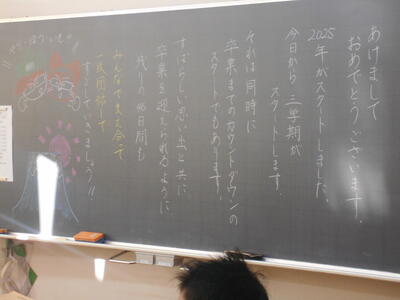 あけまして
おめでとうございます。
2025年がスタートしました。
今日から 三学期が
スタートします。
それは同時に
卒業までのカウントダウンの
スタートでもあります。
すばらしい思い出と共に
卒業を迎えられるように
残りの46日間も
みんなで支え合って
一致団結して
すごしていきましょう!!